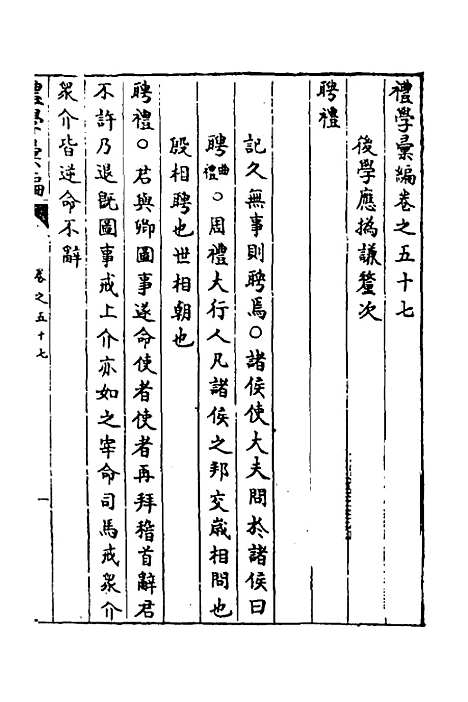 禮學彙編卷之五十七
後學應撝謙釐次
聘禮
記久無事則聘焉○諸侯使大夫問於諸侯曰
聘曲禮○周禮大行人凡諸侯之邦交歲相問也
殷相聘也世相朝也
聘禮○君與卿圖事遂命使者使者再拜稽首辭君
不許乃退旣圖事戒上介亦如之宰命司馬戒衆介
衆介皆逆命不辭
禮學彙編
卷之五十七
一